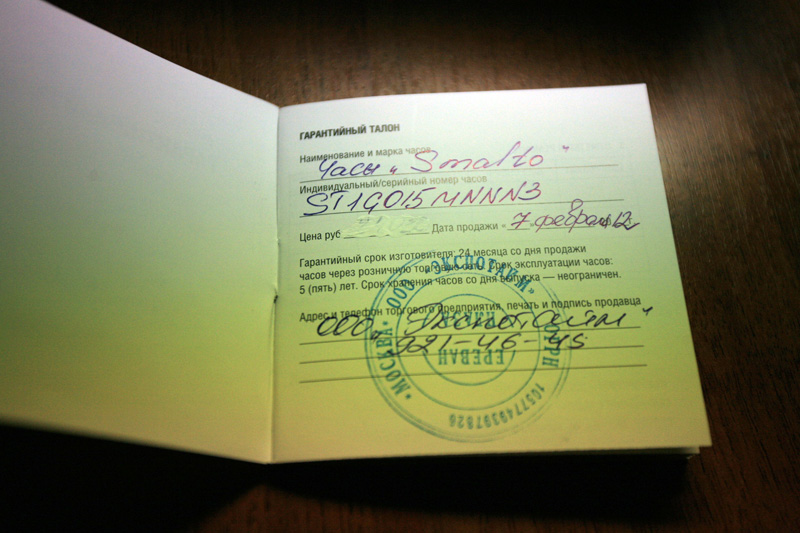 ГАРАНТИЙНЫЙ ТАЛОН
Наименование и марка часов
Часы „Smalto"
Индивидуальный/серийный номер часов
ST1G015MNNN3
Цена руб Дата продажи « 7 » февраля 12
Гарантийный срок изготовителя: 24 месяца со дня продажи
часов через розничную торговую сеть. Срок эксплуатации часов:
5 (пять) лет. Срок хранения часов со дня выпуска — неограничен.
Адрес и телефон торгового предприятия, печать и подпись продавца
ООО „Экспотайм"
921-46-45
• МОСКВА • ООО «ЭКСПОТАЙМ» ОГРН 1057749397826
ЕРЕВАН